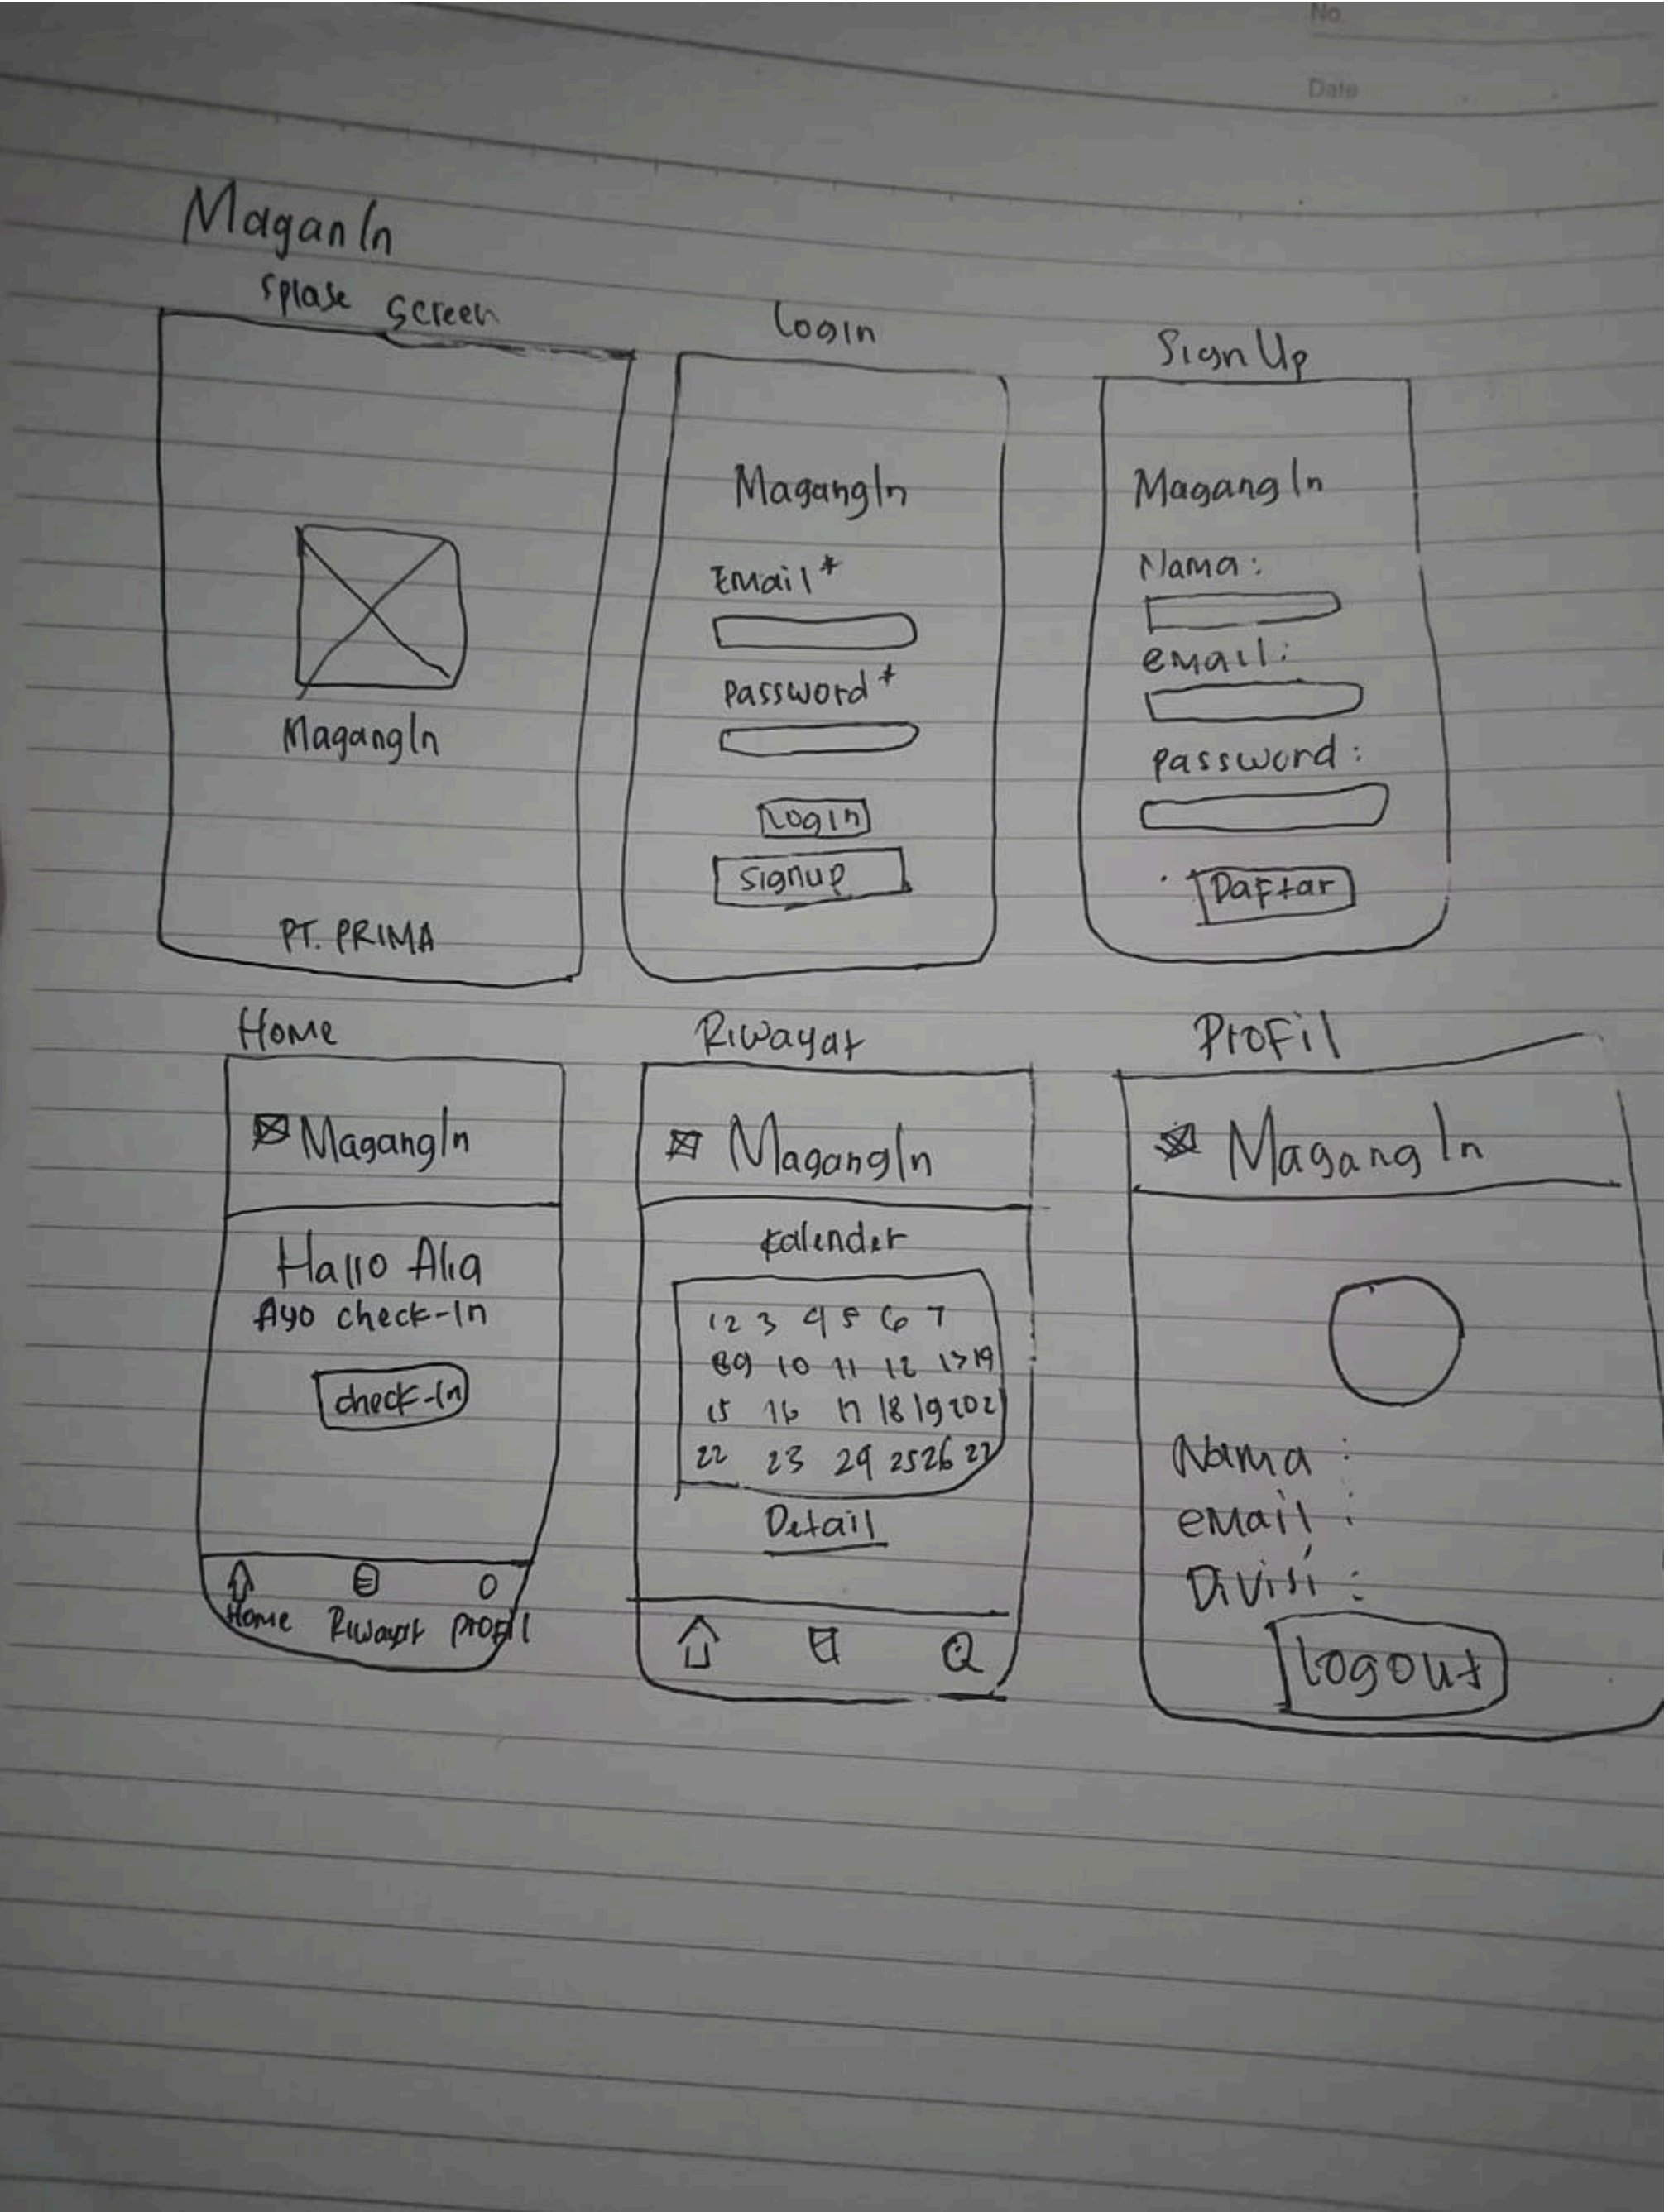 No.
Date
MaganIn
Splase Screen
MagangIn
PT. PRIMA
Login
MagangIn
Email*
Password*
Login
Signup
Sign Up
MagangIn
Nama:
email:
password:
Daftar
Home
MagangIn
Hallo Alia
Ayo check-In
check-In
Home Riwayat profil
Riwayat
MagangIn
Kalender
1 2 3 4 5 6 7
8 9 10 11 12 13 14
15 16 17 18 19 20 21
22 23 24 25 26 27
Detail
Profil
MagangIn
Nama :
email :
Divisi :
Logout